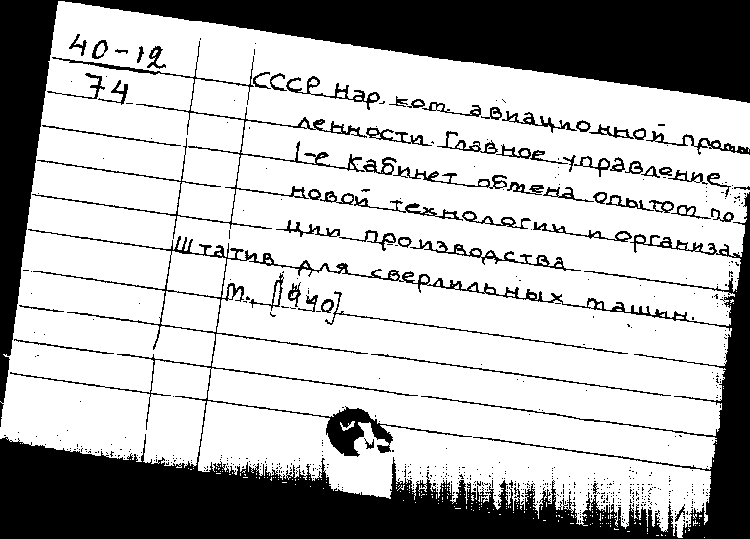 40-12
74
СССР. Нар. ком. авиационной промыш
ленности. Главное управление
1-е Кабинет обмена опытом по
новой технологии и организа-
ции производства
Штатив для сверлильных машин.
М., [1940].